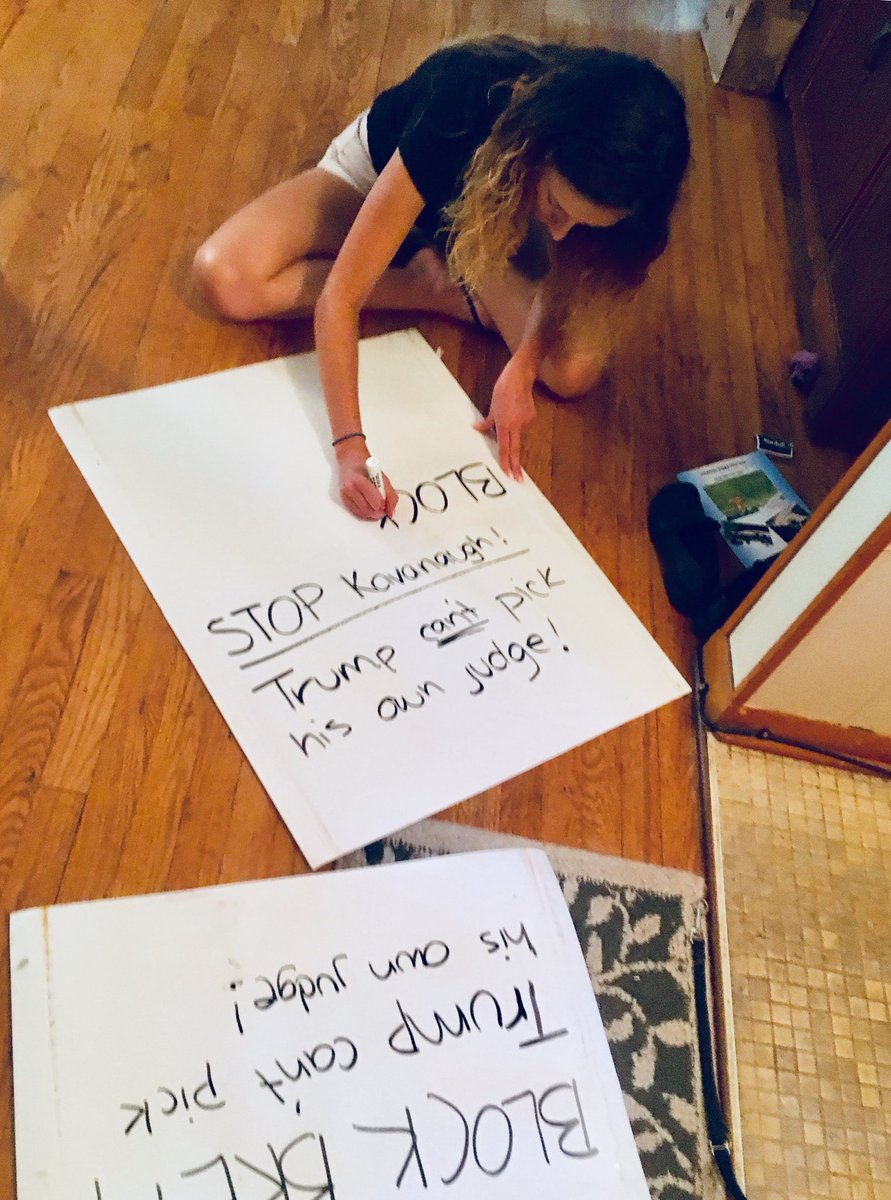 BLOCK
STOP Kavanaugh!
Trump can't pick
his own judge!
BLOCK BRETT
Trump can't pick
his own judge!